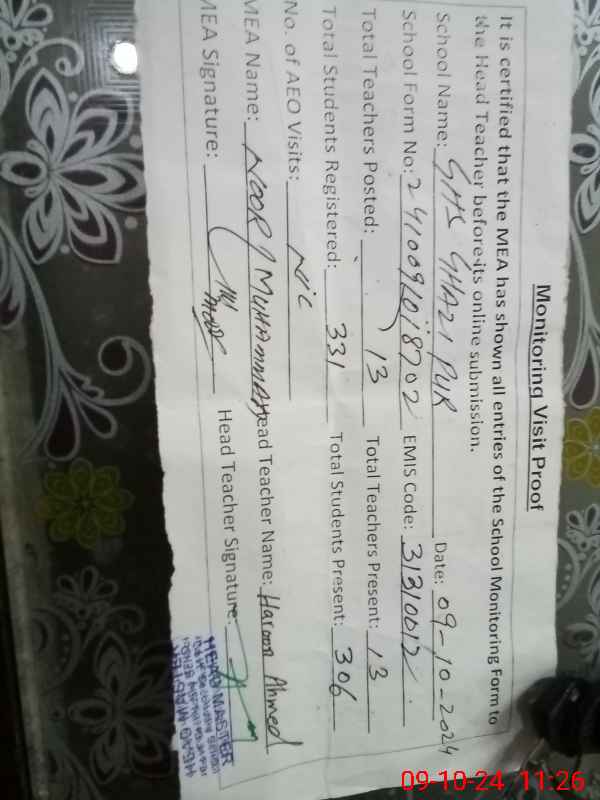 Monitoring Visit Proof
It is certified that the MEA has shown all entries of the School Monitoring Form to
the Head Teacher before its online submission.
School Name: GHS GHAZI PUR Date: 09-10-2024
School Form No: 24100961018702 EMIS Code: 31310012
Total Teachers Posted: 13 Total Teachers Present: 13
Total Students Registered: 331 Total Students Present: 306
No. of AEO Visits: Nil
MEA Name: NOOR MUHAMMAD Head Teacher Name: Haroon Ahmed
MEA Signature: Head Teacher Signature:
HEAD MASTER
09-10-24 11:26